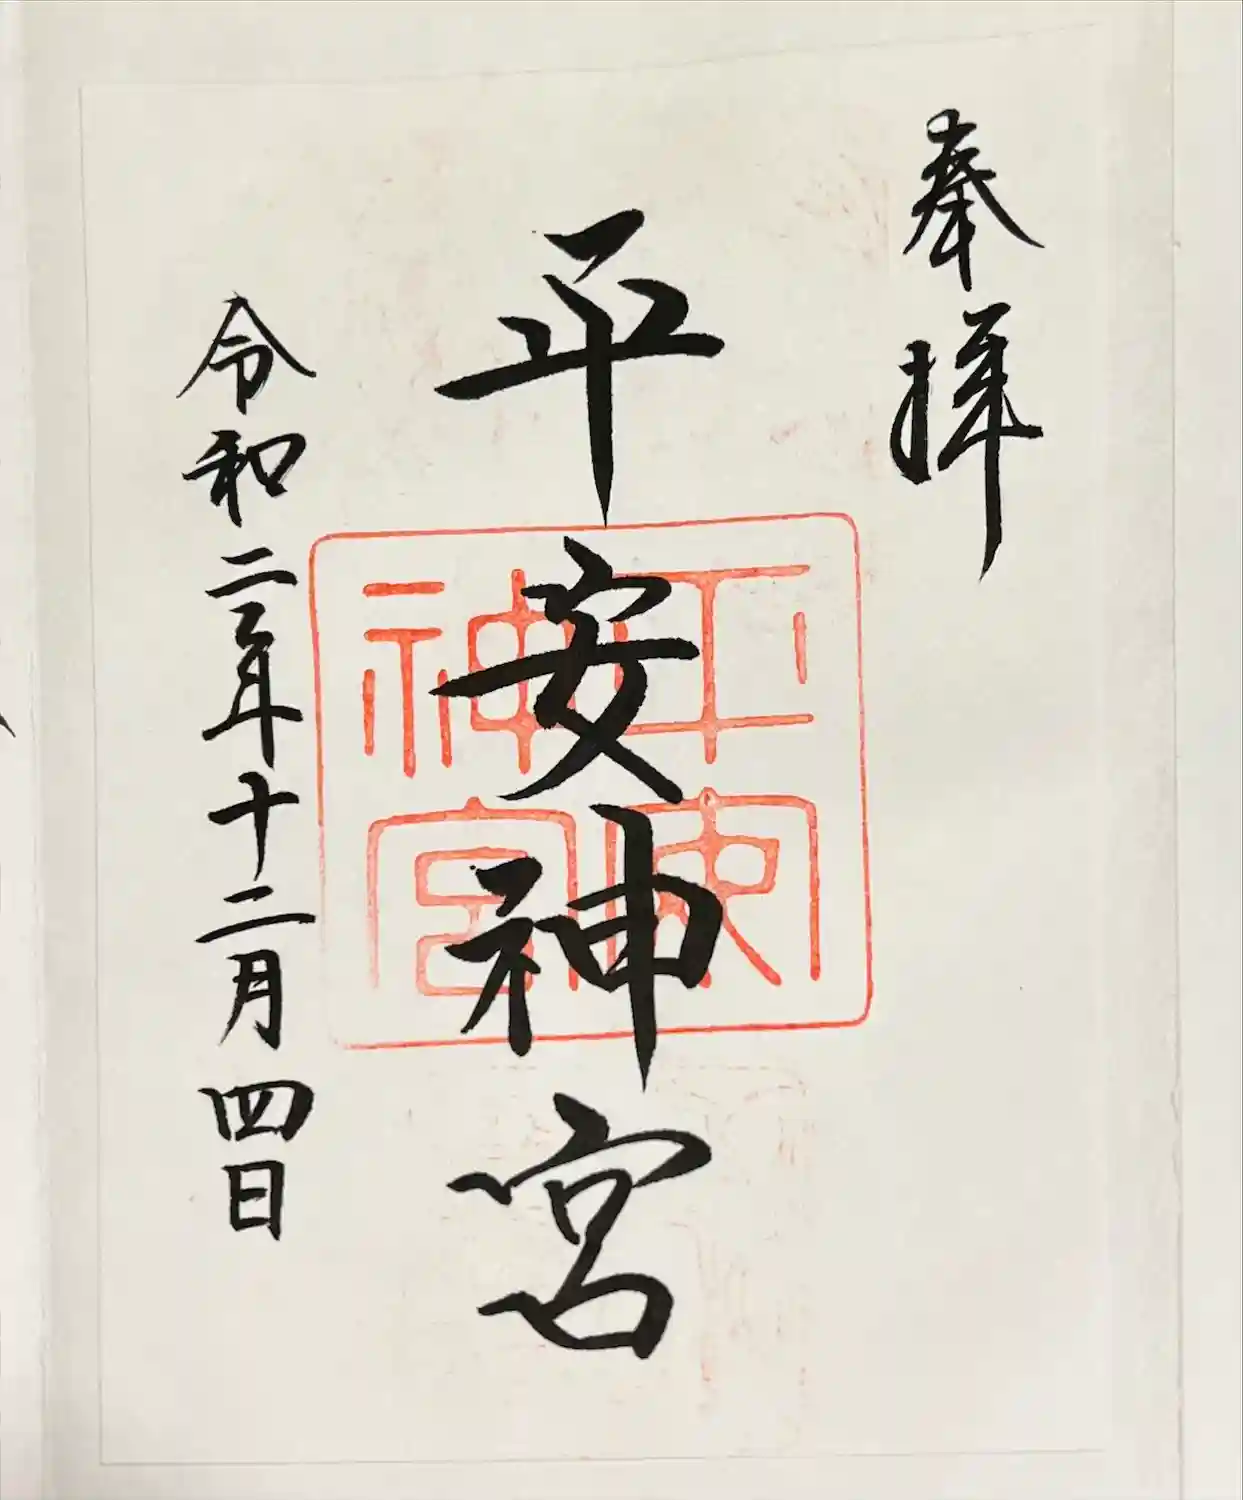 奉拝
平安神宮
平安神宮
令和二年十二月四日